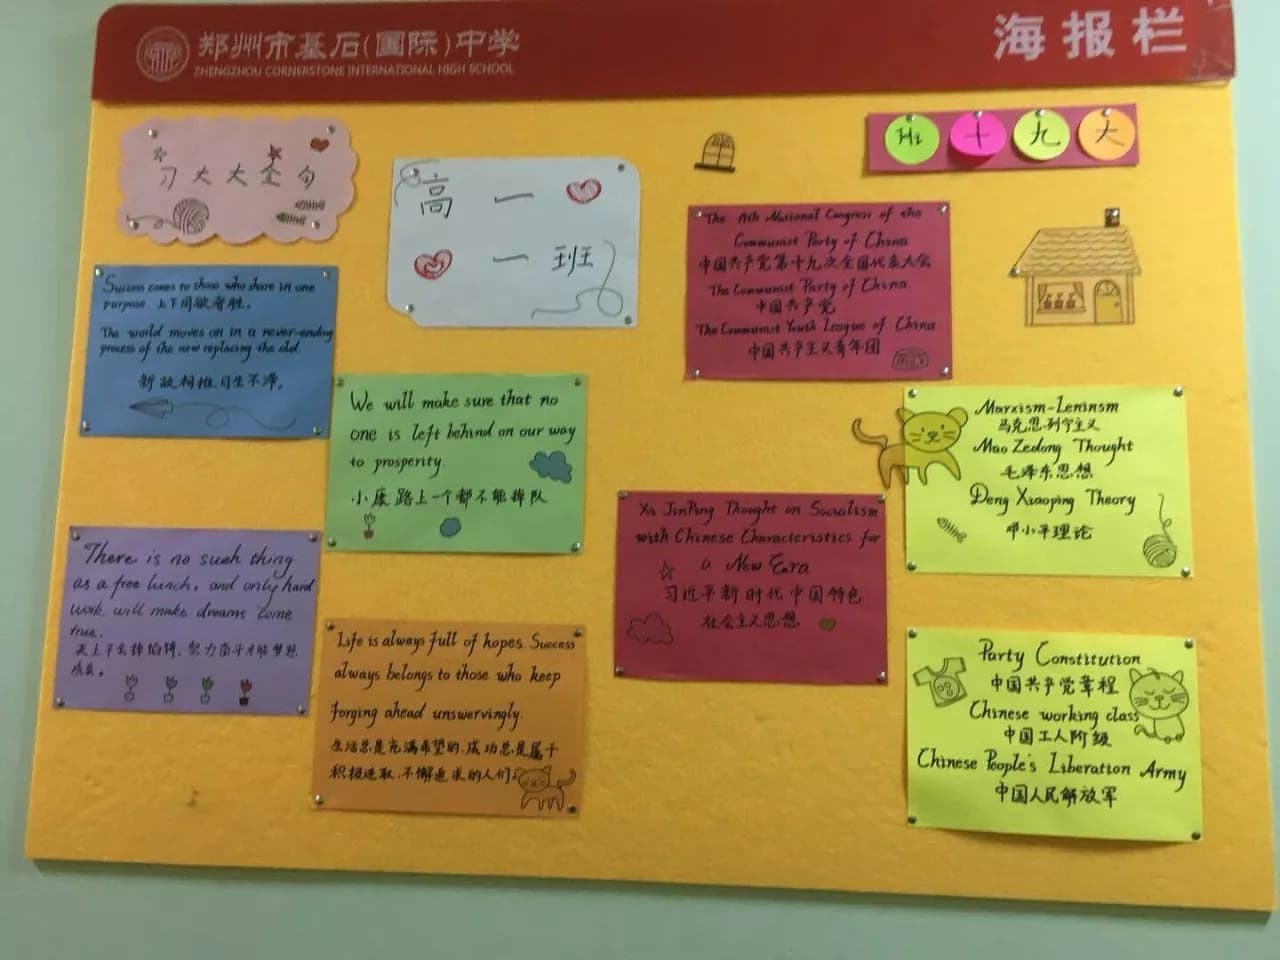 郑州市基石(国际)中学
ZHENGZHOU CORNERSTONE INTERNATIONAL HIGH SCHOOL
海报栏
习大大金句
高一
一班
十九大
Success comes to those who share in one
purpose. 上下同欲者胜。
The world moves on in a never-ending
process of the new replacing the old.
新故相推,日生不滞。
We will make sure that no
one is left behind on our way
to prosperity.
小康路上一个都不能掉队
There is no such thing
as a free lunch, and only hard
work will make dreams come
true.
天上不会掉馅饼,努力奋斗才能梦想
成真。
Life is always full of hopes. Success
always belongs to those who keep
forging ahead unswervingly.
生活总是充满希望的,成功总是属于
积极进取,不懈追求的人们
The National Congress of the
Communist Party of China
中国共产党第十九次全国代表大会
The Communist Party of China
中国共产党
The Communist Youth League of China
中国共产主义青年团
Xi JinPing Thought on Socialism
with Chinese Characteristics for
a New Eara
习近平新时代中国特色
社会主义思想
Marxism-Leninsm
马克思列宁主义
Mao Zedong Thought
毛泽东思想
Deng Xiaoping Theory
邓小平理论
Party Constitution
中国共产党章程
Chinese working class
中国工人阶级
Chinese People's Liberation Army
中国人民解放军